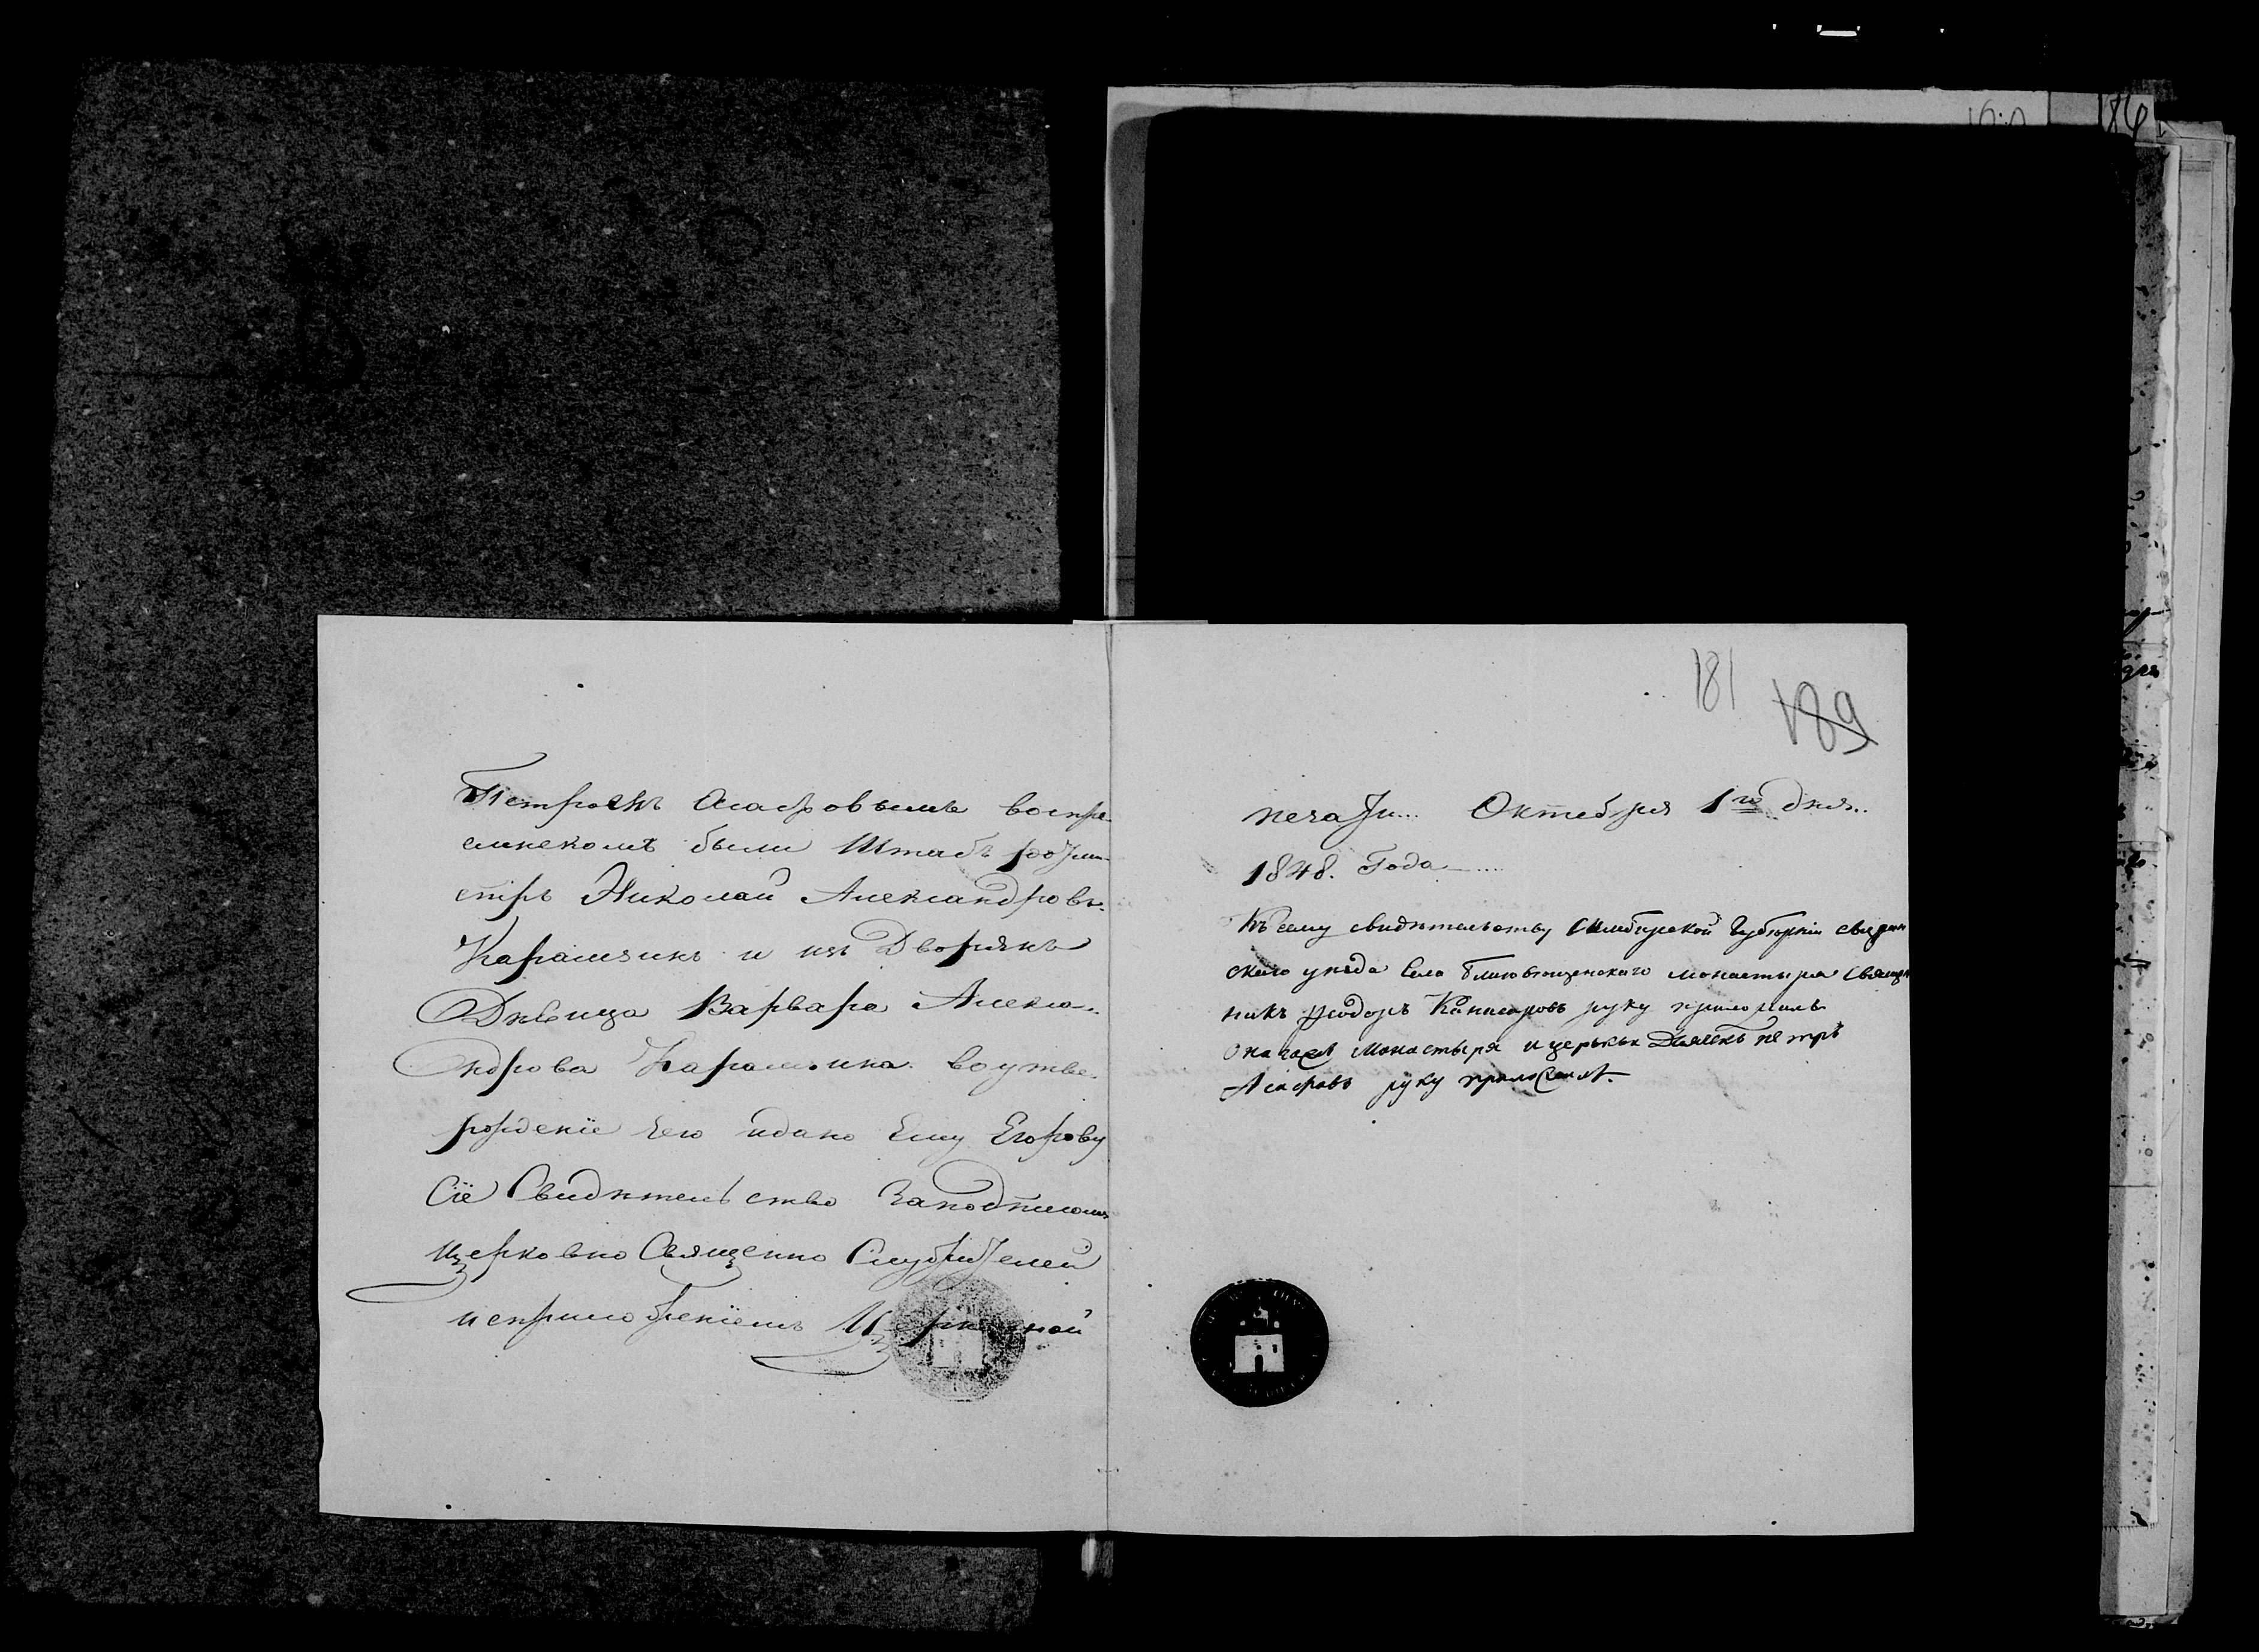 Петромъ Агафовымъ воспре
емникомъ были Штабъ ротми
стръ Николай Александровъ
Карамзинъ и изъ Дворянъ
Дѣвица Варвара Алекса
ндрова Карамзина. во утве
рождение чего идано Ему Егорову
Сіе Свидѣтельство Заподписомъ
церковно Священно Служителей
исприложеніемъ Церковной
181
189
печати... Октебря 1го дня..
1848. Года
Къ сему свидѣтельству Симбирской Губерніи
скаго уѣзда Села Благовѣщенского монастыря Священ
никъ Ѳеодоръ руку приложилъ
монастыря и церькви Петръ
руку приложилъ.